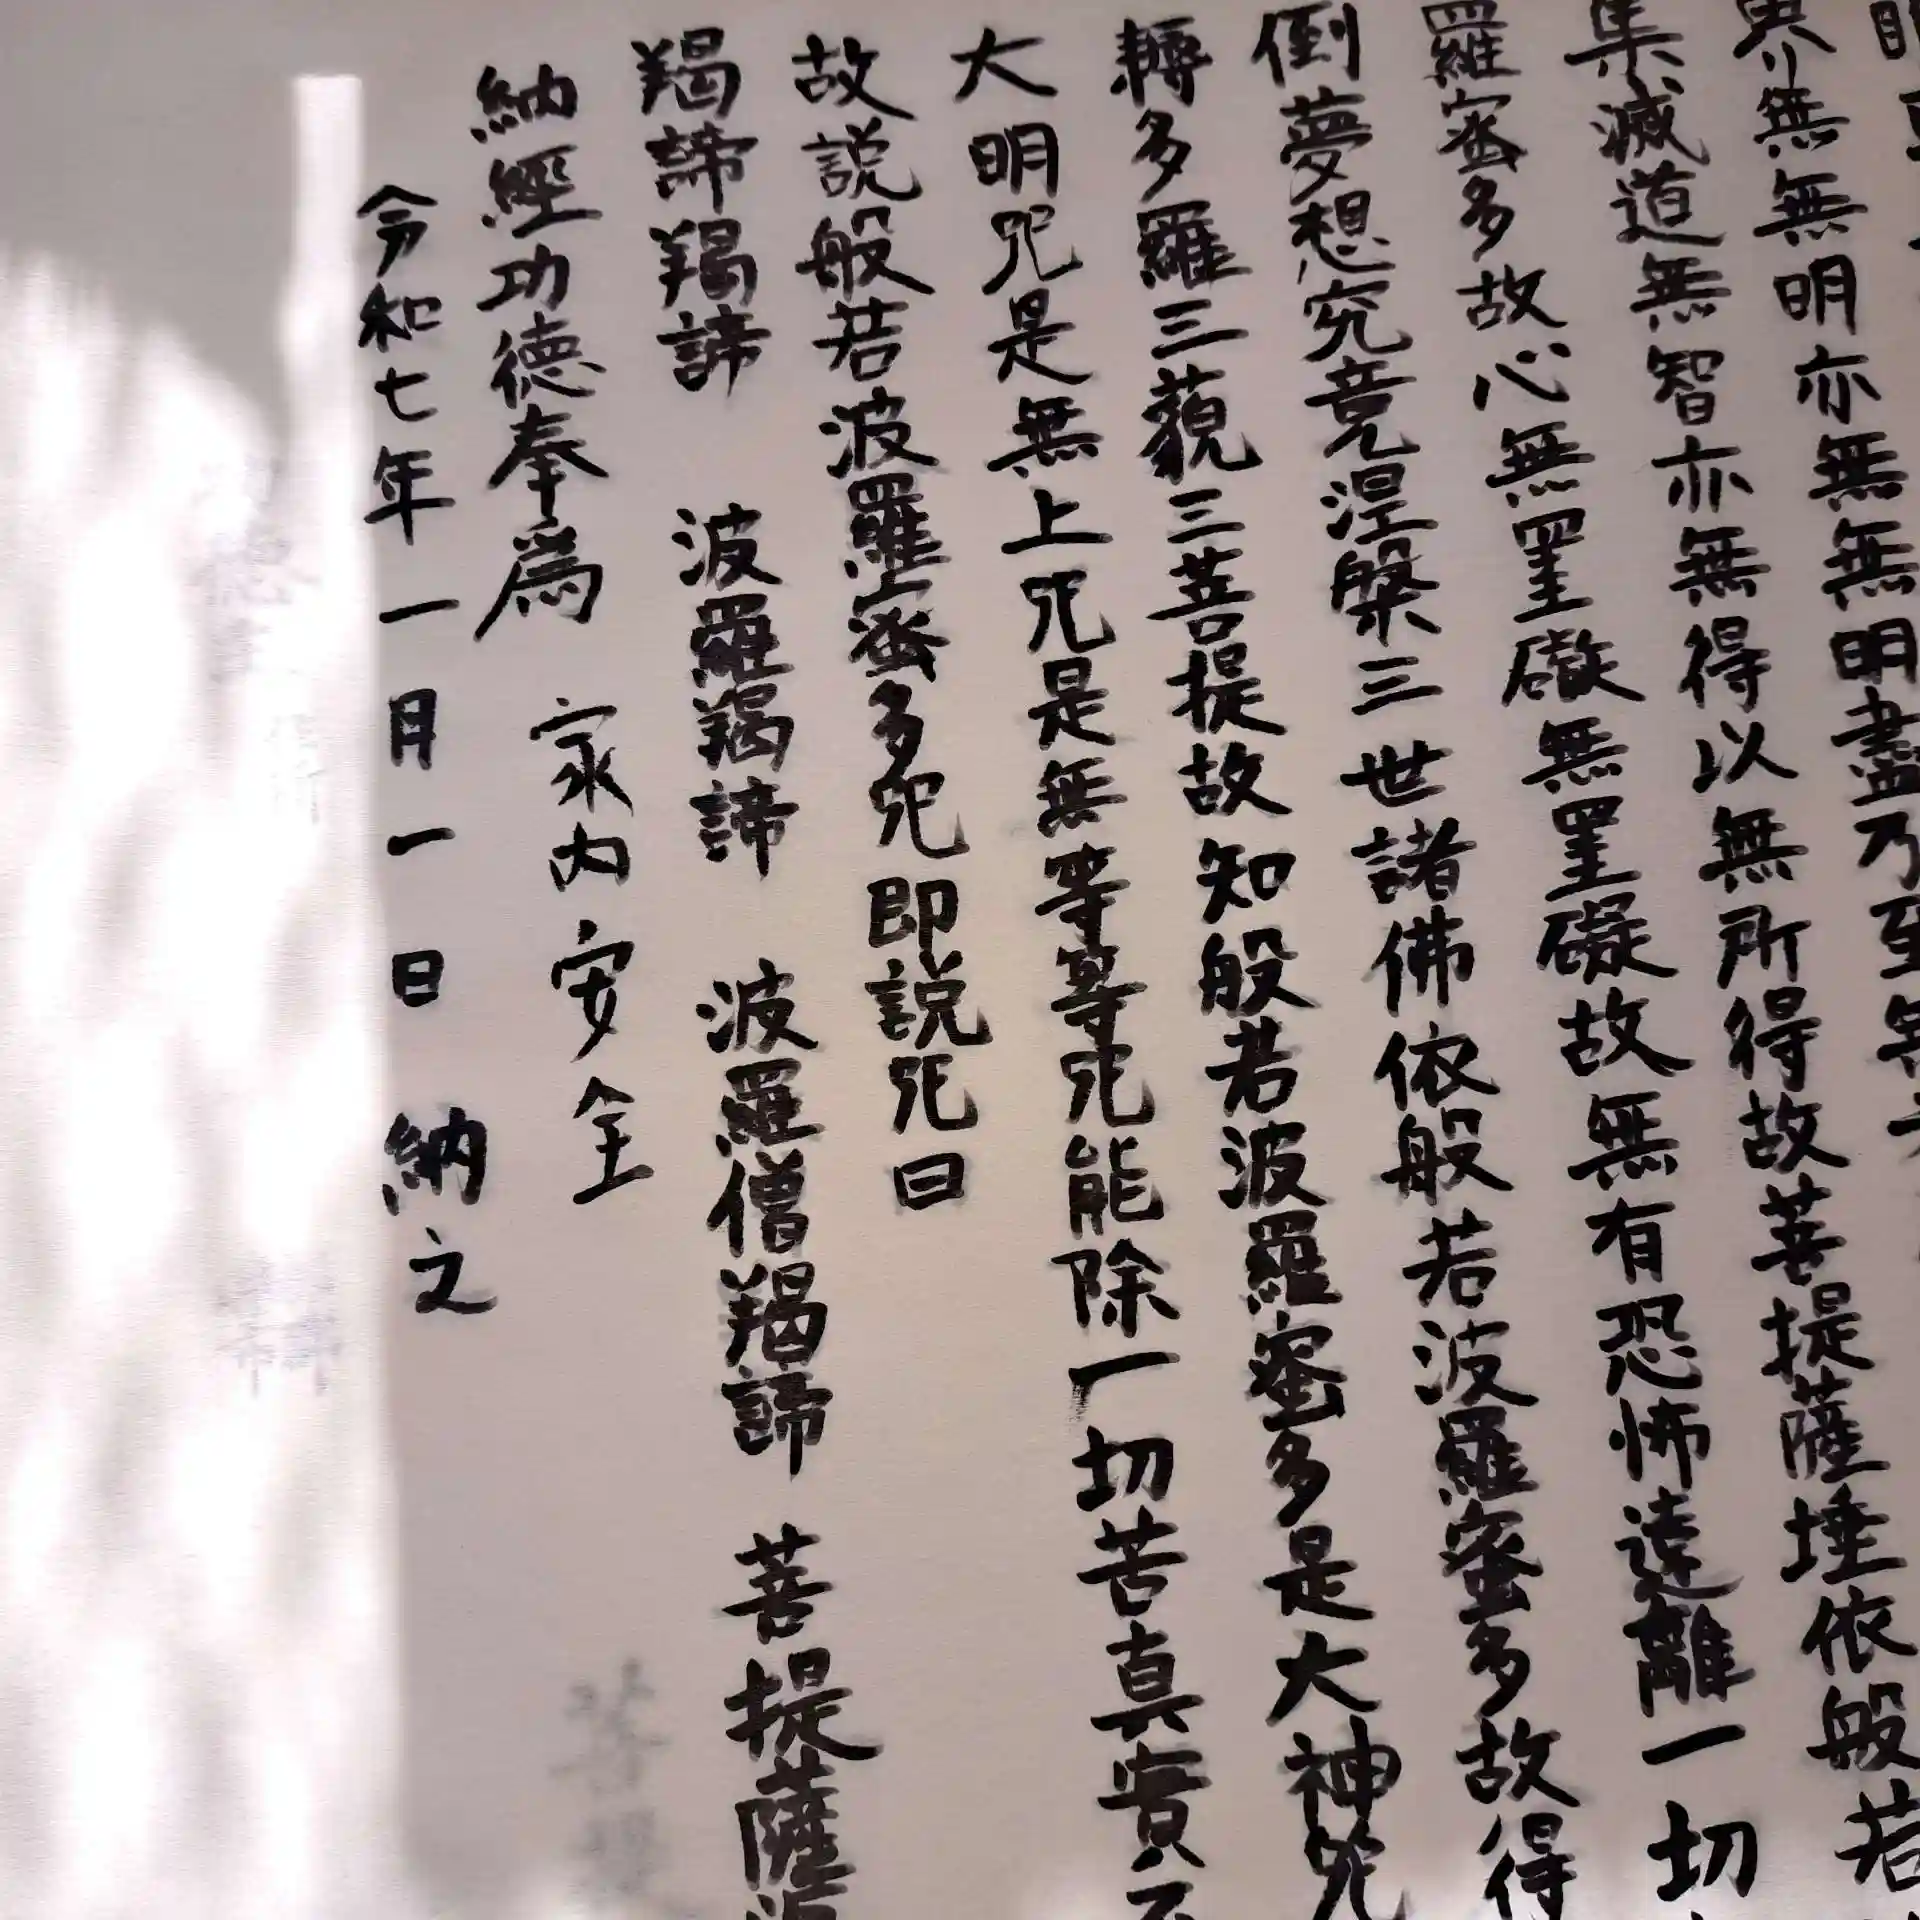 界無無明亦無無明盡乃至無
集滅道無智亦無得以無所得故菩提薩埵依般若
羅蜜多故心無罣礙無罣礙故無有恐怖遠離一切
倒夢想究竟涅槃三世諸佛依般若波羅蜜多故得
耨多羅三藐三菩提故知般若波羅蜜多是大神咒
大明咒是無上咒是無等等咒能除一切苦真實不
故説般若波羅蜜多咒即説咒曰
羯諦羯諦　波羅羯諦　波羅僧羯諦　菩提薩
納經功德奉為　家内安全
令和七年一月一日　納之